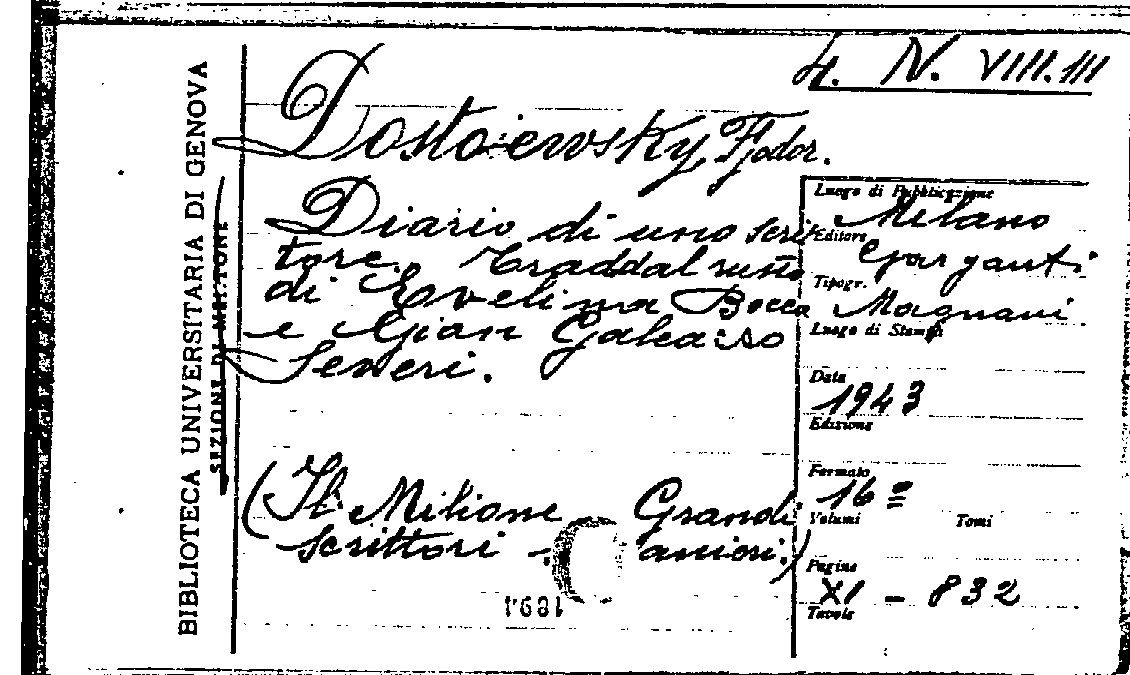 4. N. VIII.III
BIBLIOTECA UNIVERSITARIA DI GENOVA
SEZIONE DI
Dostoiewsky, Fjodor.
Diario di uno scrit-
tore. Trad dal russo
di Evelina Bocca
e Gian Galeazzo
Severi.
(Il Milione Grandi
scrittori
Luogo di Pubblicazione
Milano
Editore
Garzanti
Tipogr.
Magnani
Luogo di Stampa
Data
1943
Edizione
Formato
16º
Volumi Tomi
Pagine
XI - 832
Tavole
1894